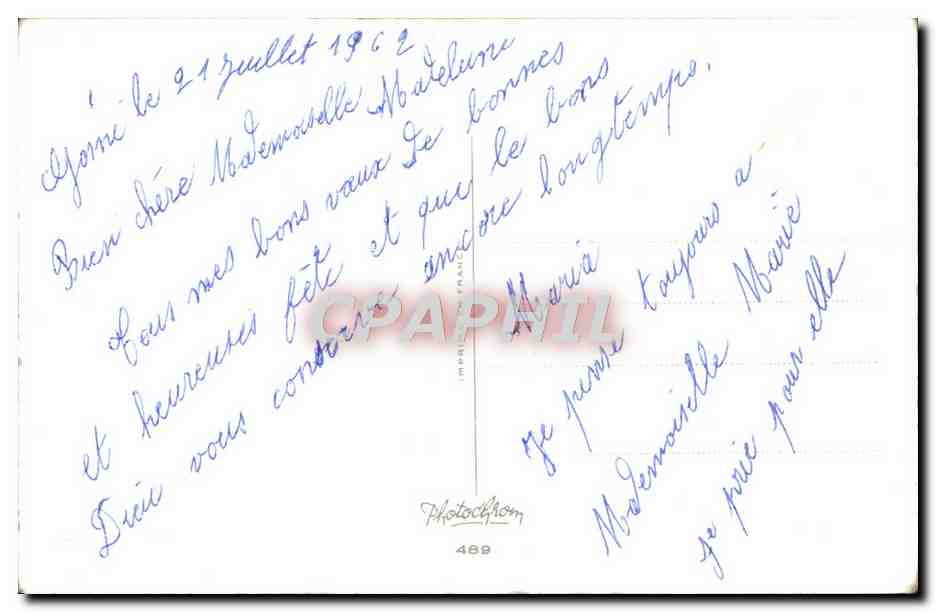 le 21 Juillet 1962
Bien chére Mademoiselle Madeleine
Tous mes bons vœux de bonnes
et heureuses fête et que le bons
Dieu vous conserve encore longtemps.
Maria
Je pense toujours a
Mademoiselle Marie
je prie pour elle
IMPRIMÉ EN FRANCE
Photochrom
489
CPAPHIL